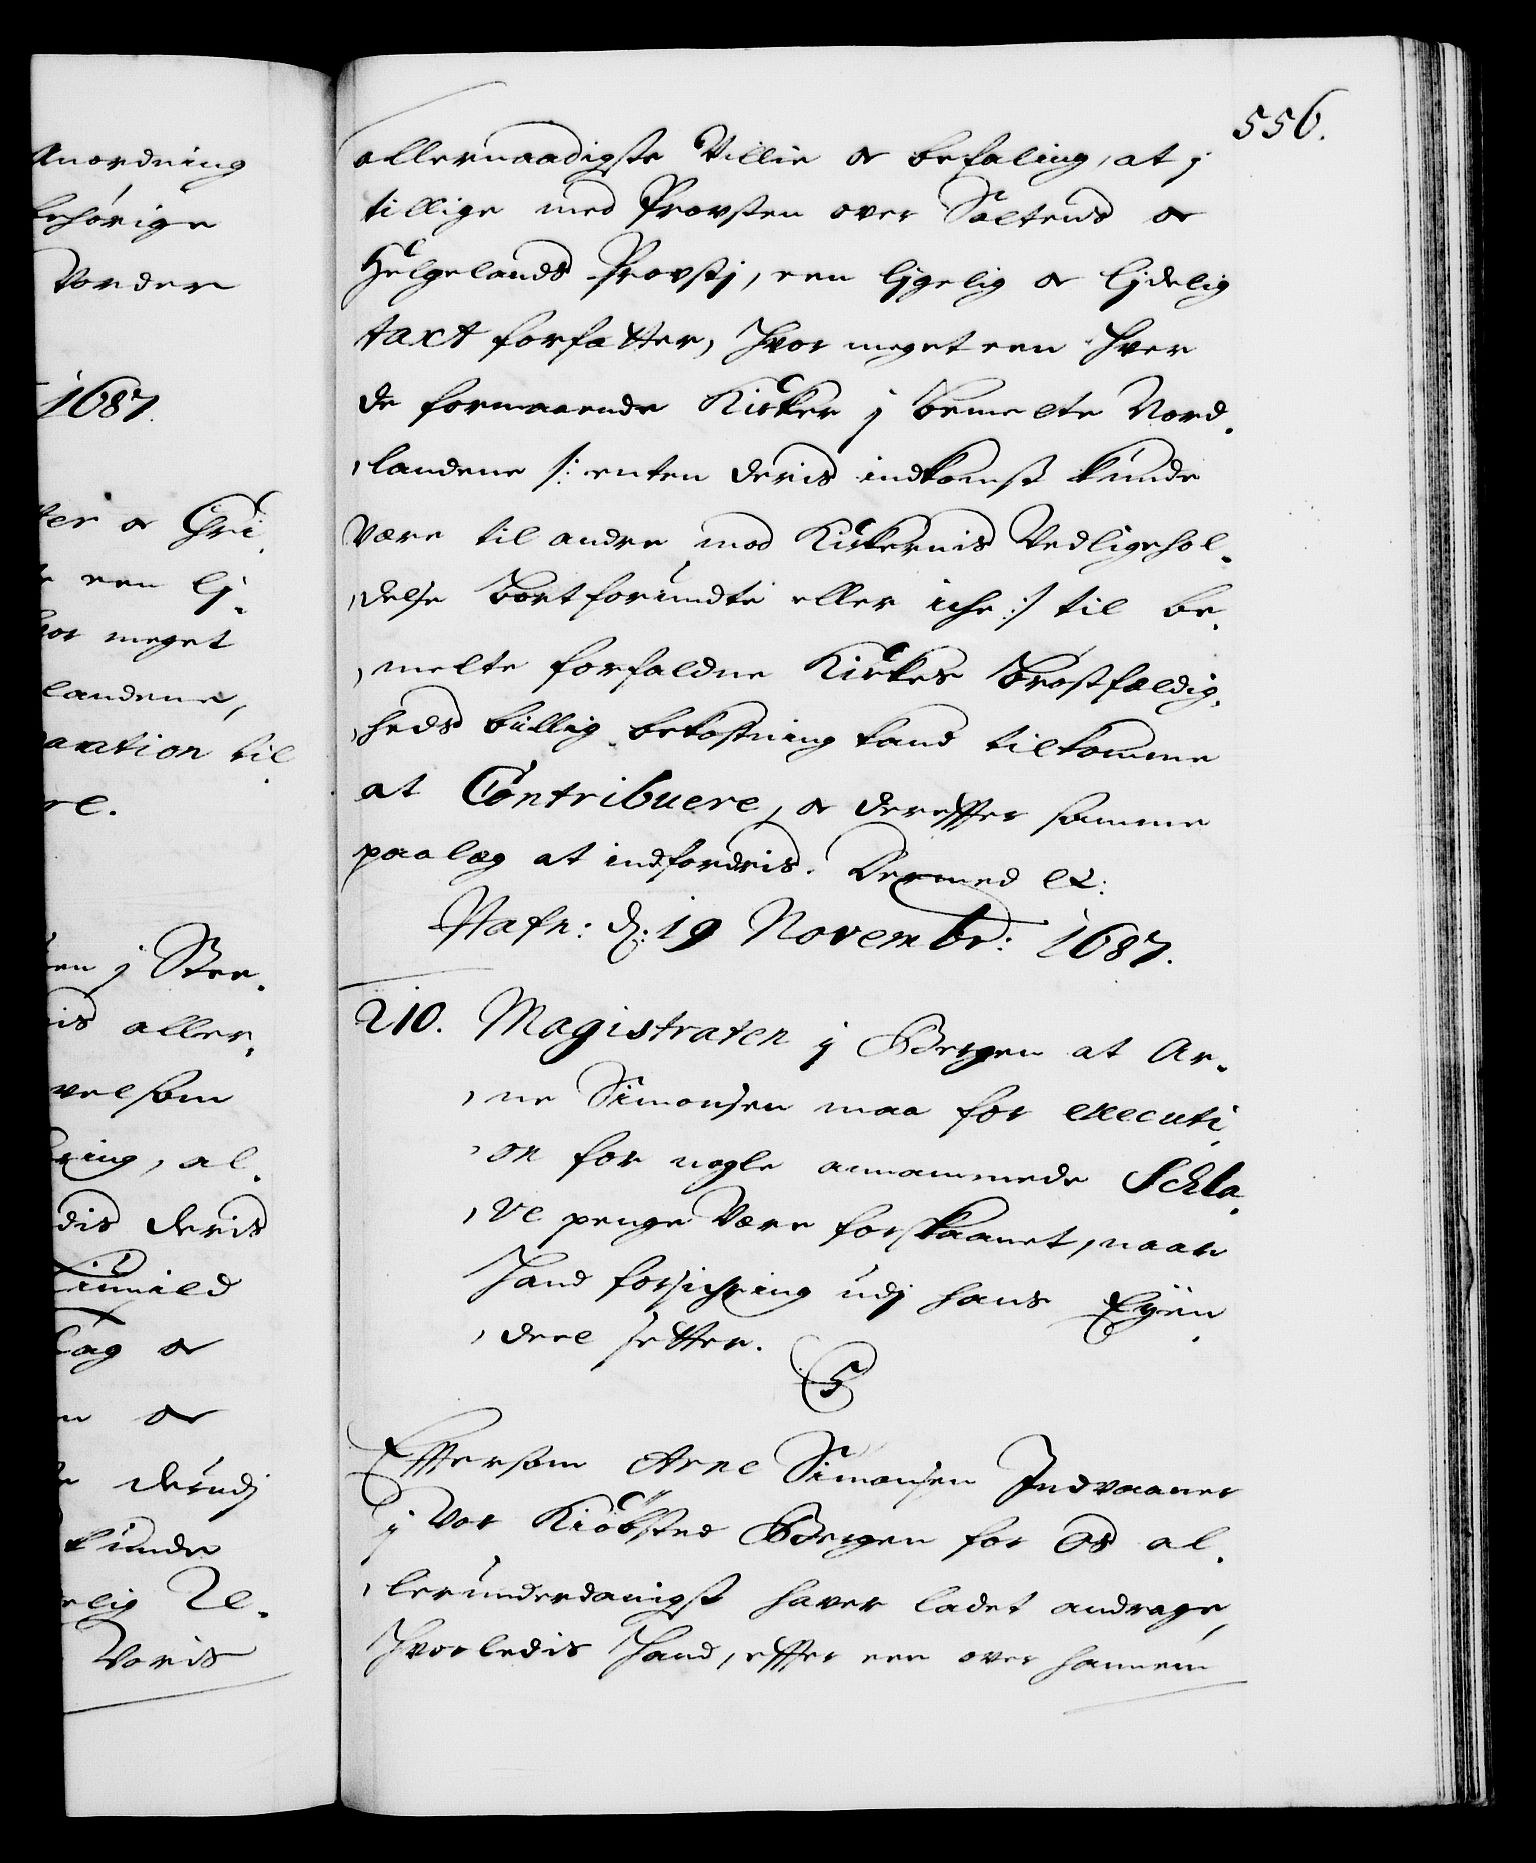 Anordning
behörige
Vorder
1687.
ter og Chri
een lj-
hvor meget
landene,
paration til
re.
en j Ster-
is aller-
velsom
kring, al-
dis deris
Lag og
n og
derudj
kunde
elig Ze-
Voris
556.
allernaadigste Villie og befaling, at j
tillige med Provsten over Saltens og
Helgelands Provstj, een ljgelig og ljdelig
taxt forfatter, hvor meget een hver
de formaaende Kirker j bemelte Nord-
landene /: enten deris indkomst kunde
være til andre mod Kirkernis Vedligehol-
delse bortforundte eller iche :/ til be-
melte forfaldne Kirkes Bröstfældig-
heds billig bekostning kand tilkomme
at Contribuere, og derefter samme
paalæg at indfordris. Dermed etc:
Hafn: d: 19 Novembr: 1687.
210. Magistraten j Bergen at Ar-
ne Simonsen maa for executi-
on for nogle annammede Schla-
ve penge være forskaanet, naar
Hand forsichring udj hans Eijen-
deel setter.
C5
Eftersom Arne Simonsen Indvaaner
j Vor Kiöbsted Bergen for Os al-
lerunderdanigst haver ladet andrage,
Hvorledis Hand, efter een over hannem